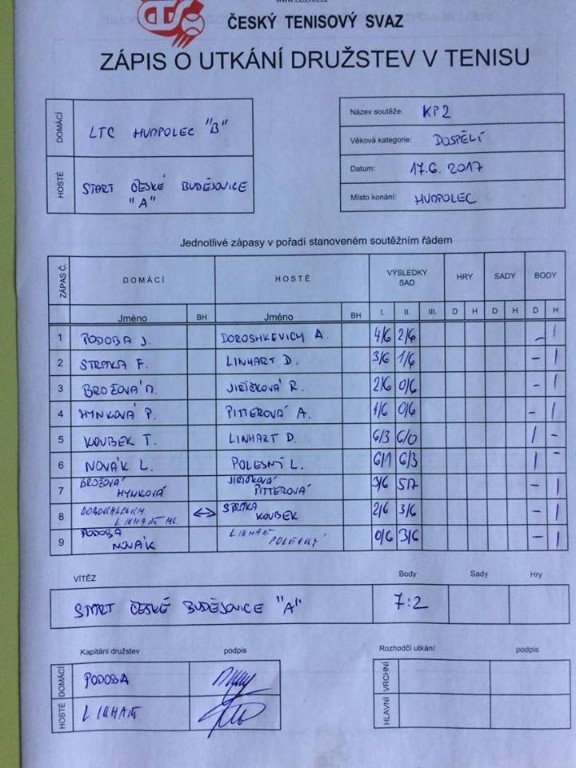 ČESKÝ TENISOVÝ SVAZ
ZÁPIS O UTKÁNÍ DRUŽSTEV V TENISU
DOMÁCÍ LTC HUMPOLEC "B"
HOSTÉ START ČESKÉ BUDĚJOVICE
"A"
Název soutěže: KP2
Věková kategorie: DOSPĚLÍ
Datum: 17.6.2017
Místo konání: HUMPOLEC
Jednotlivé zápasy v pořadí stanoveném soutěžním řádem
ZÁPAS Č. DOMÁCÍ HOSTÉ VÝSLEDKY SAD HRY SADY BODY
Jméno BH Jméno BH I. II. III. D H D H D H
1 PODOBA J. DOROSHKEVICH A. 4/6 2/6 - 1
2 STRAKA F. LINHART D. 3/6 1/6 - 1
3 BROŽOVÁ M. JIŘIČKOVÁ R. 2/6 0/6 - 1
4 HYNKOVÁ P. PITTEROVÁ A. 1/6 0/6 - 1
5 KOUBEK T. LINHART D. 6/3 6/0 1 -
6 NOVÁK L. POLESNÝ L. 6/1 6/3 1 -
7 BROŽOVÁ HYNKOVÁ JIŘIČKOVÁ PITTEROVÁ 3/6 5/7 - 1
8 LINHART ML. ↔ STRAKA KOUBEK 2/6 3/6 - 1
9 PODOBA NOVÁK LINHART POLESNÝ 0/6 3/6 - 1
VÍTĚZ Body Sady Hry
START ČESKÉ BUDĚJOVICE "A" 7:2
Kapitáni družstev podpis
DOMÁCÍ PODOBA
HOSTÉ LINHART
Rozhodčí utkání podpis
VRCHNÍ
HLAVNÍ